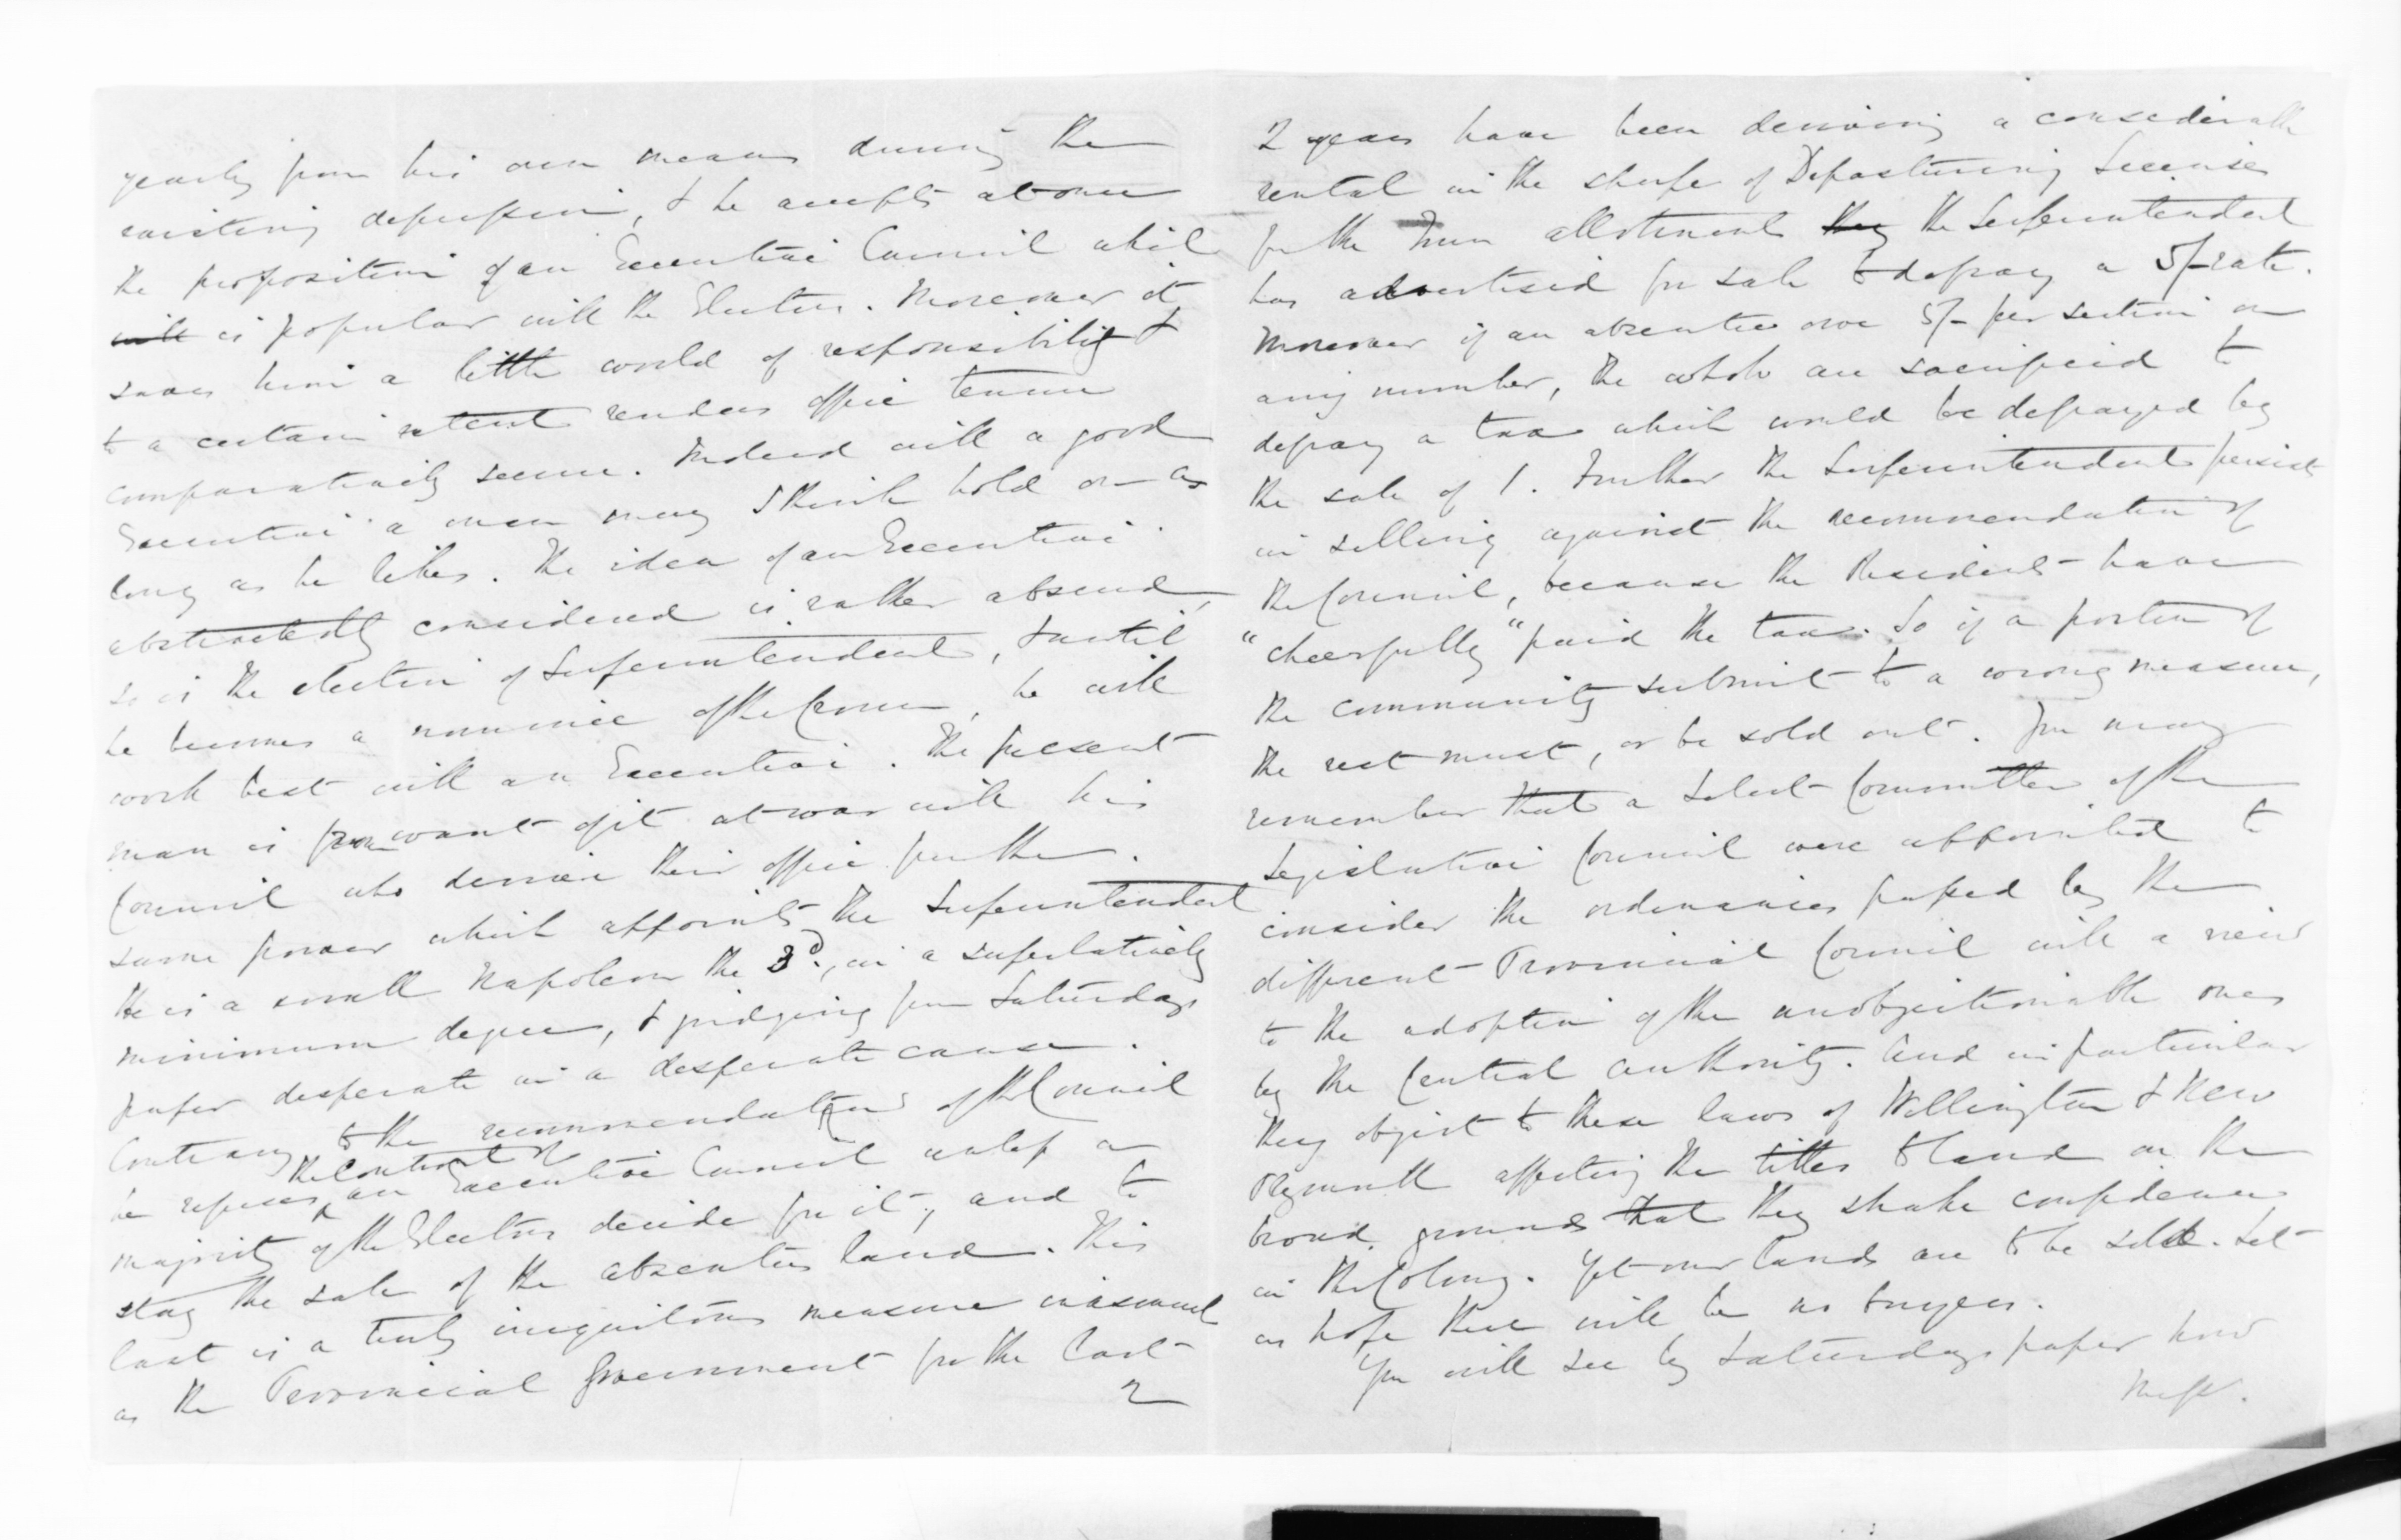 yearly from his own means during the
existing depression, & he accepts at once
the proposition of an Executive Council which
will is popular with the Electors. Moreover it
saves him a little world of responsibility &
to a certain extent renders office tenure
comparatively secure. Indeed with a good
Executive a man may I think hold on as
long as he likes. The idea of an Executive
abstractedly considered is rather absurd,
so is the election of Superintendent, & until
he becomes a nominee of the Crown, he will
work best with an Executive. The present
man is from want of it at war with his
Council who derive their office from the
same power which appoints the Superintendent
He is a small Napoleon the 3d., in a superlatively
minimum degree, & judging from Saturdays
paper desperate in a desperate cause.
Contrary to the recommendations of the Council
he refuses the control of an Executive Council unless a
majority of the Electors decide for it; and to
stay the sale of the absentees land. This
last is a truly iniquitous measure inasmuch
as the Provincial Government for the last
2
2 years have been deriving a considerable
rental in the shape of Depasturing Licenses
for the Town allotments they the Superintendent
has advertised for sale to defray a 5/- rate.
Moreover if an absentee owe 5/- per section on
any number, the whole are sacrificed to
defray a tax which would be defrayed by
the sale of 1. Further the Superintendent persists
in selling against the recommendation of
the Council, because the Residents have
"cheerfully" paid the tax. So if a portion of
the community submit to a wrong measure,
the rest must, or be sold out. You may
remember that a Select Committee of the
Legislative Council were appointed to
consider the ordinances passed by the
different Provincial Council with a view
to the adoption of the unobjectionable ones
by the Central authority. And in particular
they object to these laws of Wellington & New
Plymouth affecting the titles to land on the
broad grounds that they shake confidence
in the Colony. Yet our lands are to be sold. Let
us hope there will be no buyers.
You will see by Saturdays paper how